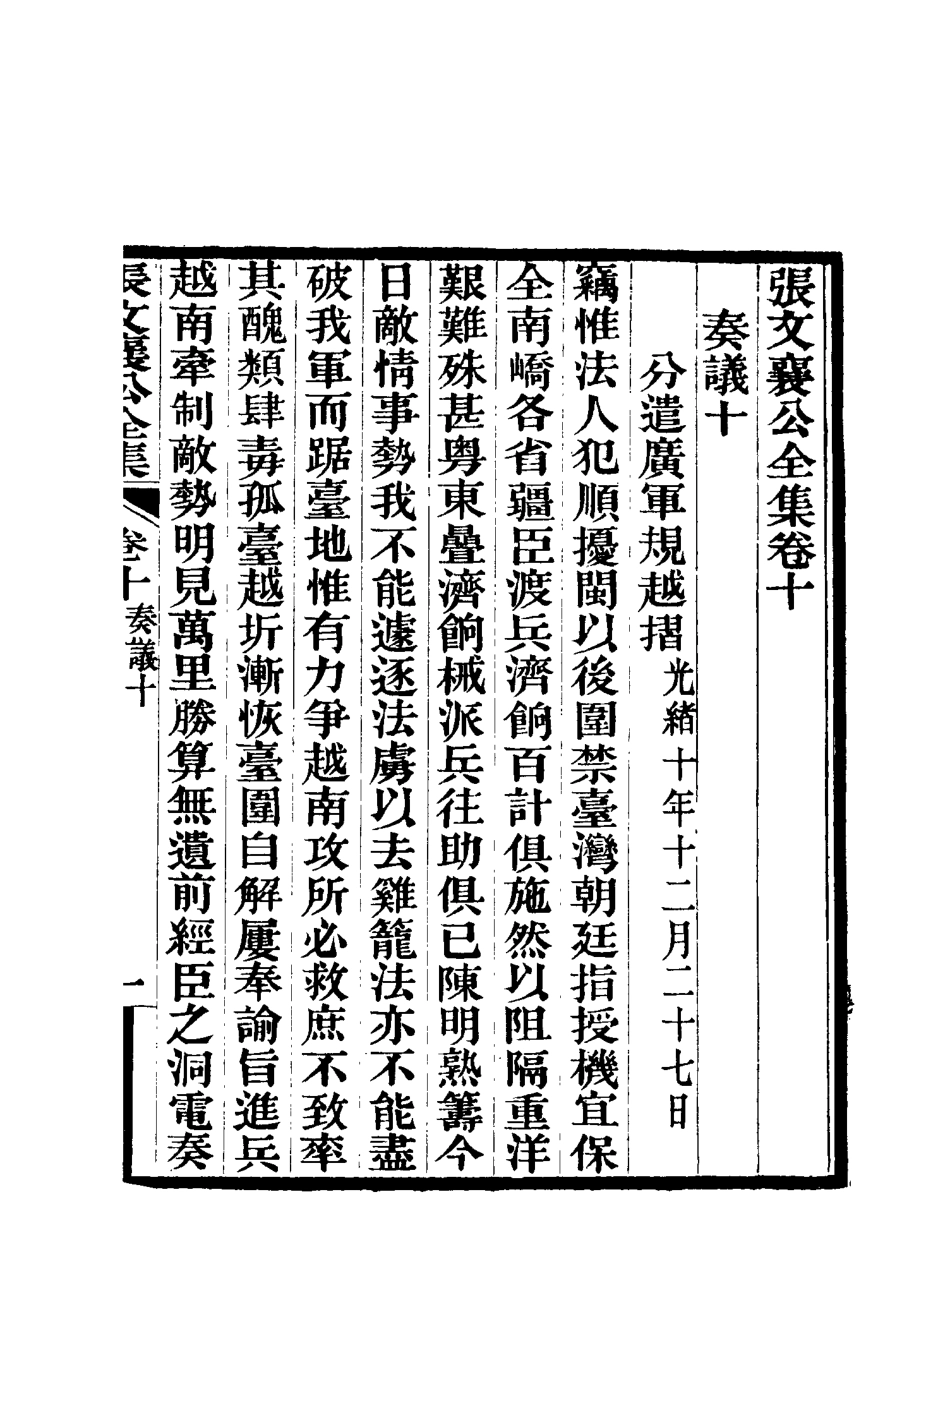 張文襄公全集卷十
奏議十
分遣廣軍規越摺光緒十年十二月二十七日
竊惟法人犯順擾閩以後圍禁臺灣朝廷指授機宜保
全南嶠各省疆臣渡兵濟餉百計俱施然以阻隔重洋
艱難殊甚粤東疊濟餉械派兵往助俱已陳明熟籌今
日敵情事勢我不能遽逐法虜以去雞籠法亦不能盡
破我軍而踞臺地惟有力爭越南攻所必救庶不致率
其醜類肆毒孤臺越圻漸恢臺圍自解屢奉諭旨進兵
越南牽制敵勢明見萬里勝算無遺前經臣之洞電奏
張文襄公全集
卷十
奏議十
一